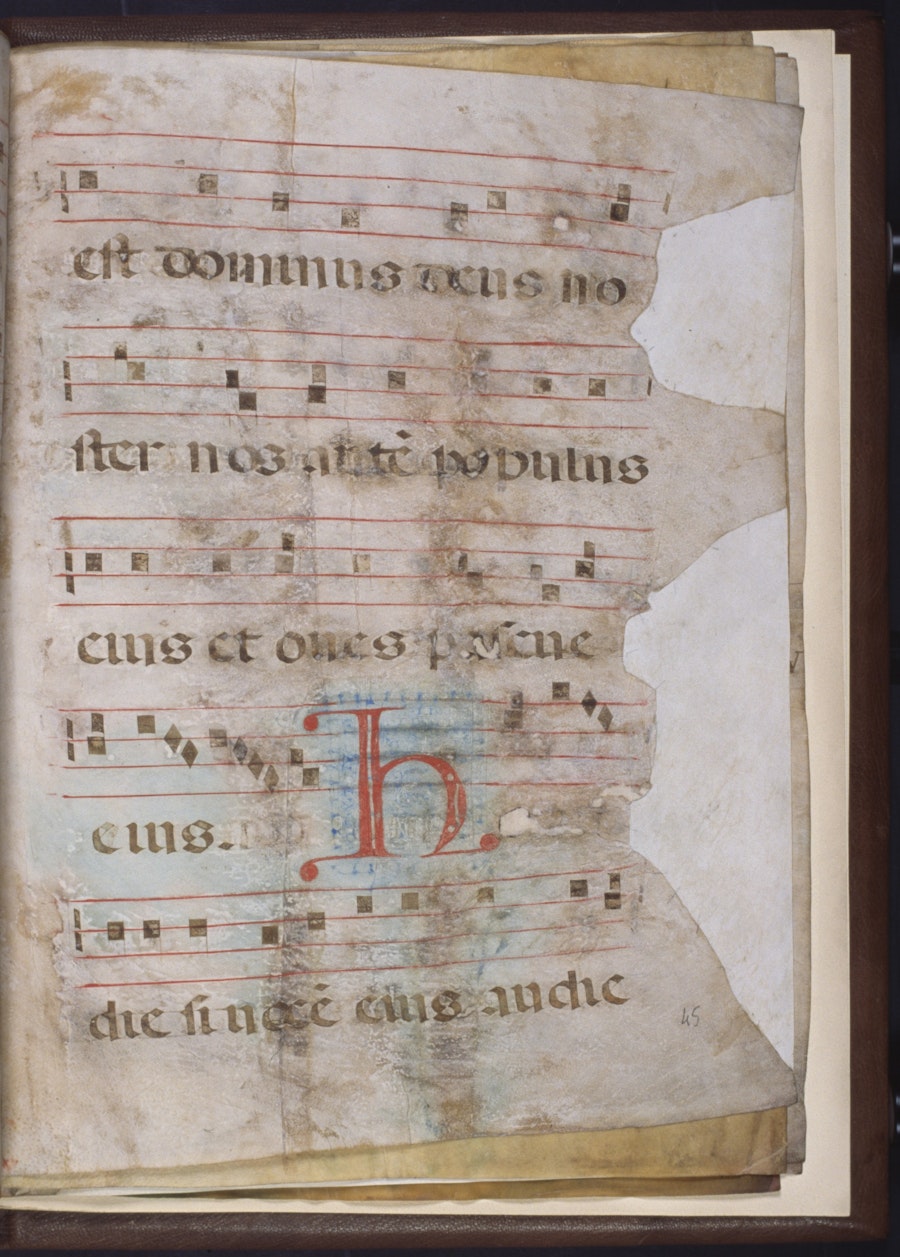 est dominus deus no
ster nos autē populus
eius et oues pascue
eius. h
die si uocē eius audie
45